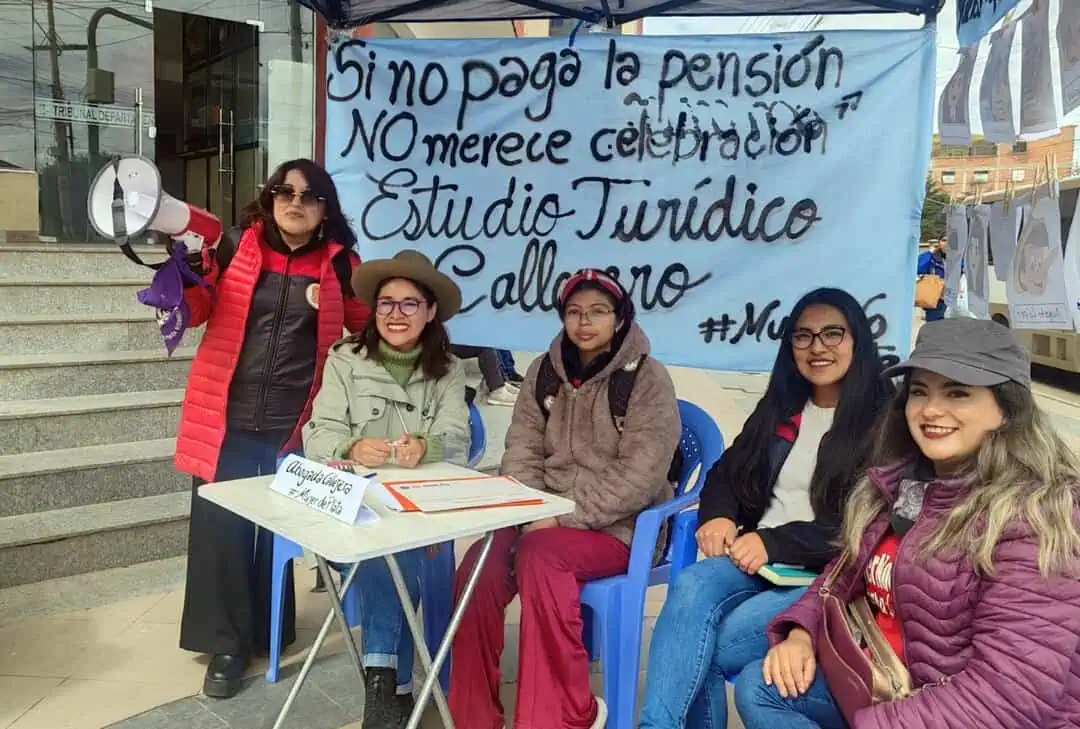 TRIBUNAL
Si no paga la pensión
NO merece celebración"
Estudio Jurídico
Callejero
Abogada Callejera
# Mujer de Plata